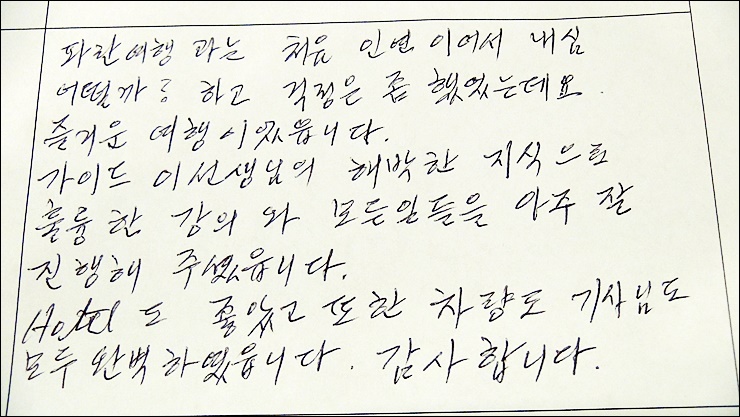 파란여행 과는 처음 인연 이어서 내심
어떨까 하고 걱정은 좀 했었는데요.
즐거운 여행이었읍니다.
가이드 이선생님의 해박한 지식으로
훌륭한 강의 와 모든일들을 아주 잘
진행해 주셨읍니다.
Hotel 도 좋았고 또한 차량도 기사님도
모두 완벽하였읍니다. 감사합니다.